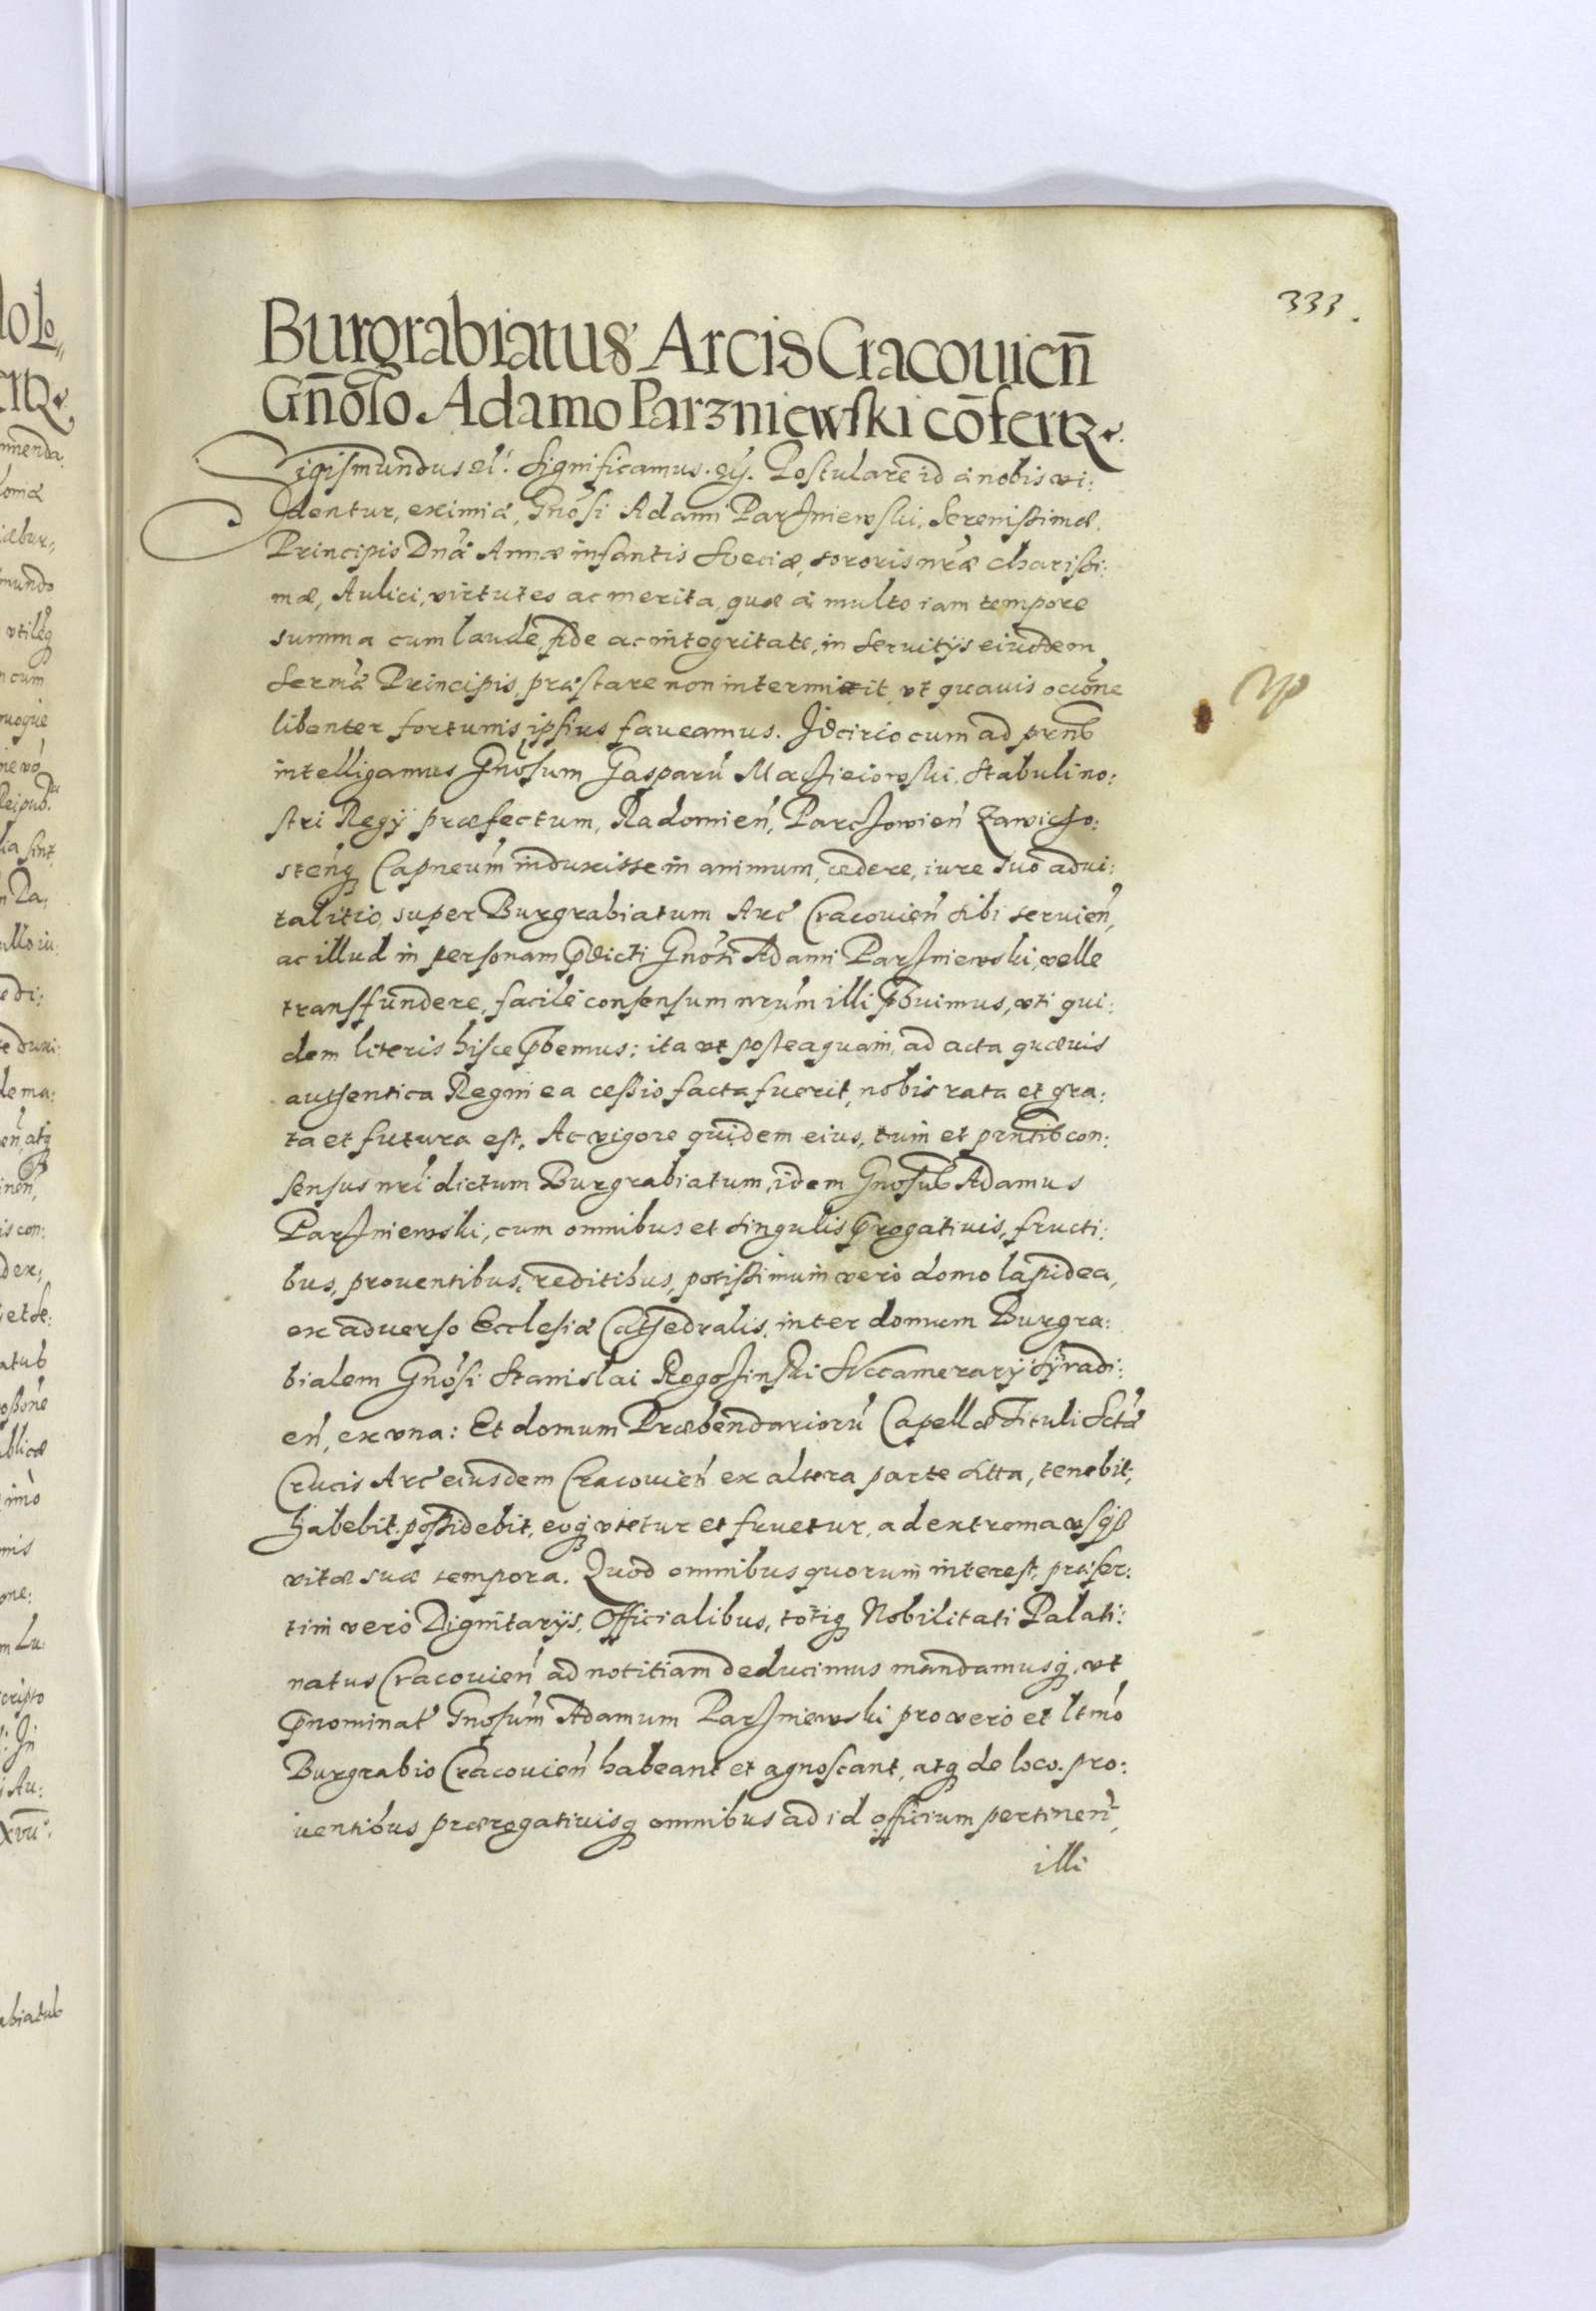 333.
Burgrabiatus Arcis Cracouieñ
Gnoso Adamo Parzniewski cōfertR.
Sigismundus etc. Significamus. Postulare id à nobis vi:
dentur, eximiæ, Gnosi Adami Parzniewski, Serenissimæ
Principis Dnæ Annæ infantis Sueciæ, sororis nræ charissi:
mæ, Aulici, virtutes ac merita, quæ à multo iam tempore
summa cum laude, fide ac integritate, in seruitijs eiusdem
Sermæ Principis, præstare non intermittit, vt quauis occone
libenter fortunis ipsius faueamus. Idcirco cum ad prns
intelligamus Gnosum Gasparū Maczieiowski, Stabuli no:
stri Regij præfectum, Radomień, Parczowień Zawicho:
stenq Capneum induxisse in animum, cedere, iure suo adui:
talitio, super Burgrabiatum Arc Cracouień sibi seruień,
ac illud in personam pdicti Gnosi Adami Parzniewski, velle
transfundere, facilè consensum nrum illi pbuimus, vti qui:
dem literis hisce pbemus; ita vt posteaquam, ad acta quæuis
authentica Regni ea cessio facta fuerit, nobis rata et gra:
ta et futura est, Ac vigore quidem eius, tum et prntis con:
sensus nri dictum Burgrabiatum, idem Gnosus Adamus
Parzniewski, cum omnibus et singulis progatiuis, fructi:
bus, prouentibus, reditibus, potissimum verò domo lapidea,
ex aduerso Ecclesiæ Cathedralis, inter domum Burgra:
bialem Gnosi Stanislai Rogozinski Succamerarij Syradi:
eń, ex vna: Et domum Præbendariorū Capellæ Tituli Sctæ
Crucis Arc eiusdem Cracouień ex altera parte sitta, tenebit,
habebit, possidebit, eoq vtetur et fruetur, ad extrema vsq
vitæ suæ tempora. Quod omnibus quorum interest, præser:
tim verò Dignitarijs, Officialibus, totiq Nobilitati Palati:
natus Cracouień ad notitiam deducimus mandamusq, vt
pnominat Gnosum Adamum Parzniewski pro vero et ltmo
Burgrabio Cracouień habeant et agnoscant, atq de loco, pro:
uentibus prærogatiuisq omnibus ad id officium pertineń,
illi